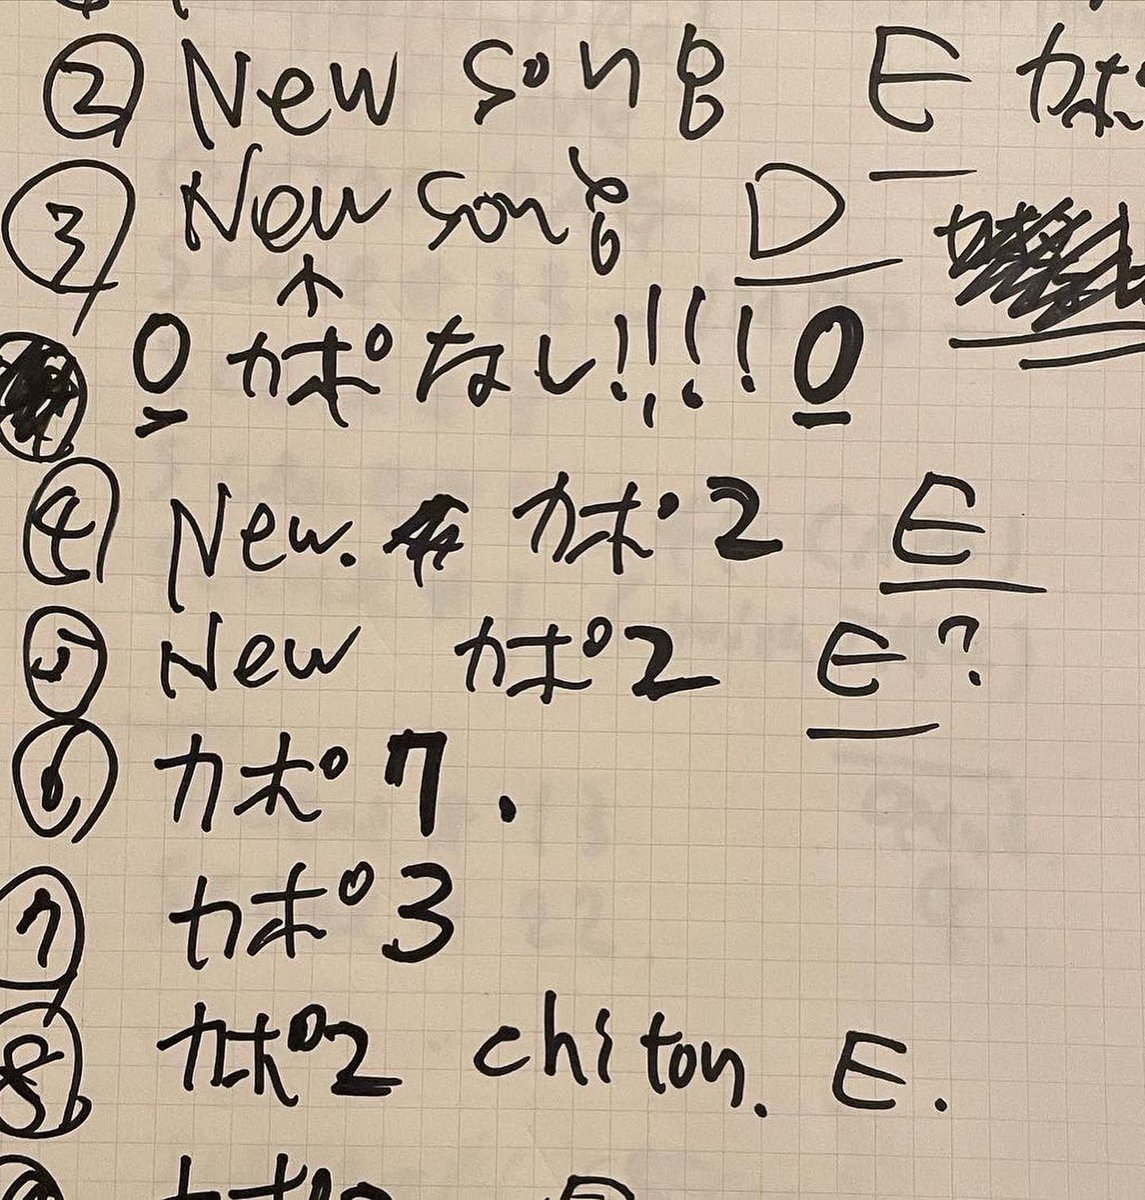 ② New song E カポ
③ New song D
↑
0 カポなし!!!! 0
④ New. カポ2 E
⑤ New カポ2 E?
⑥ カポ7.
⑦ カポ3
⑧ カポ2 chiton. E.